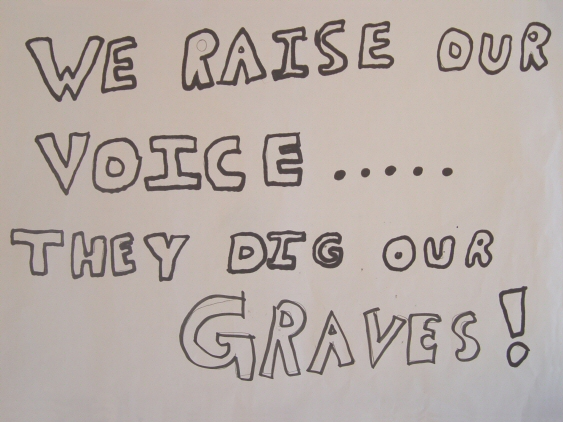 WE RAISE OUR
VOICE.....
THEY DIG OUR
GRAVES!